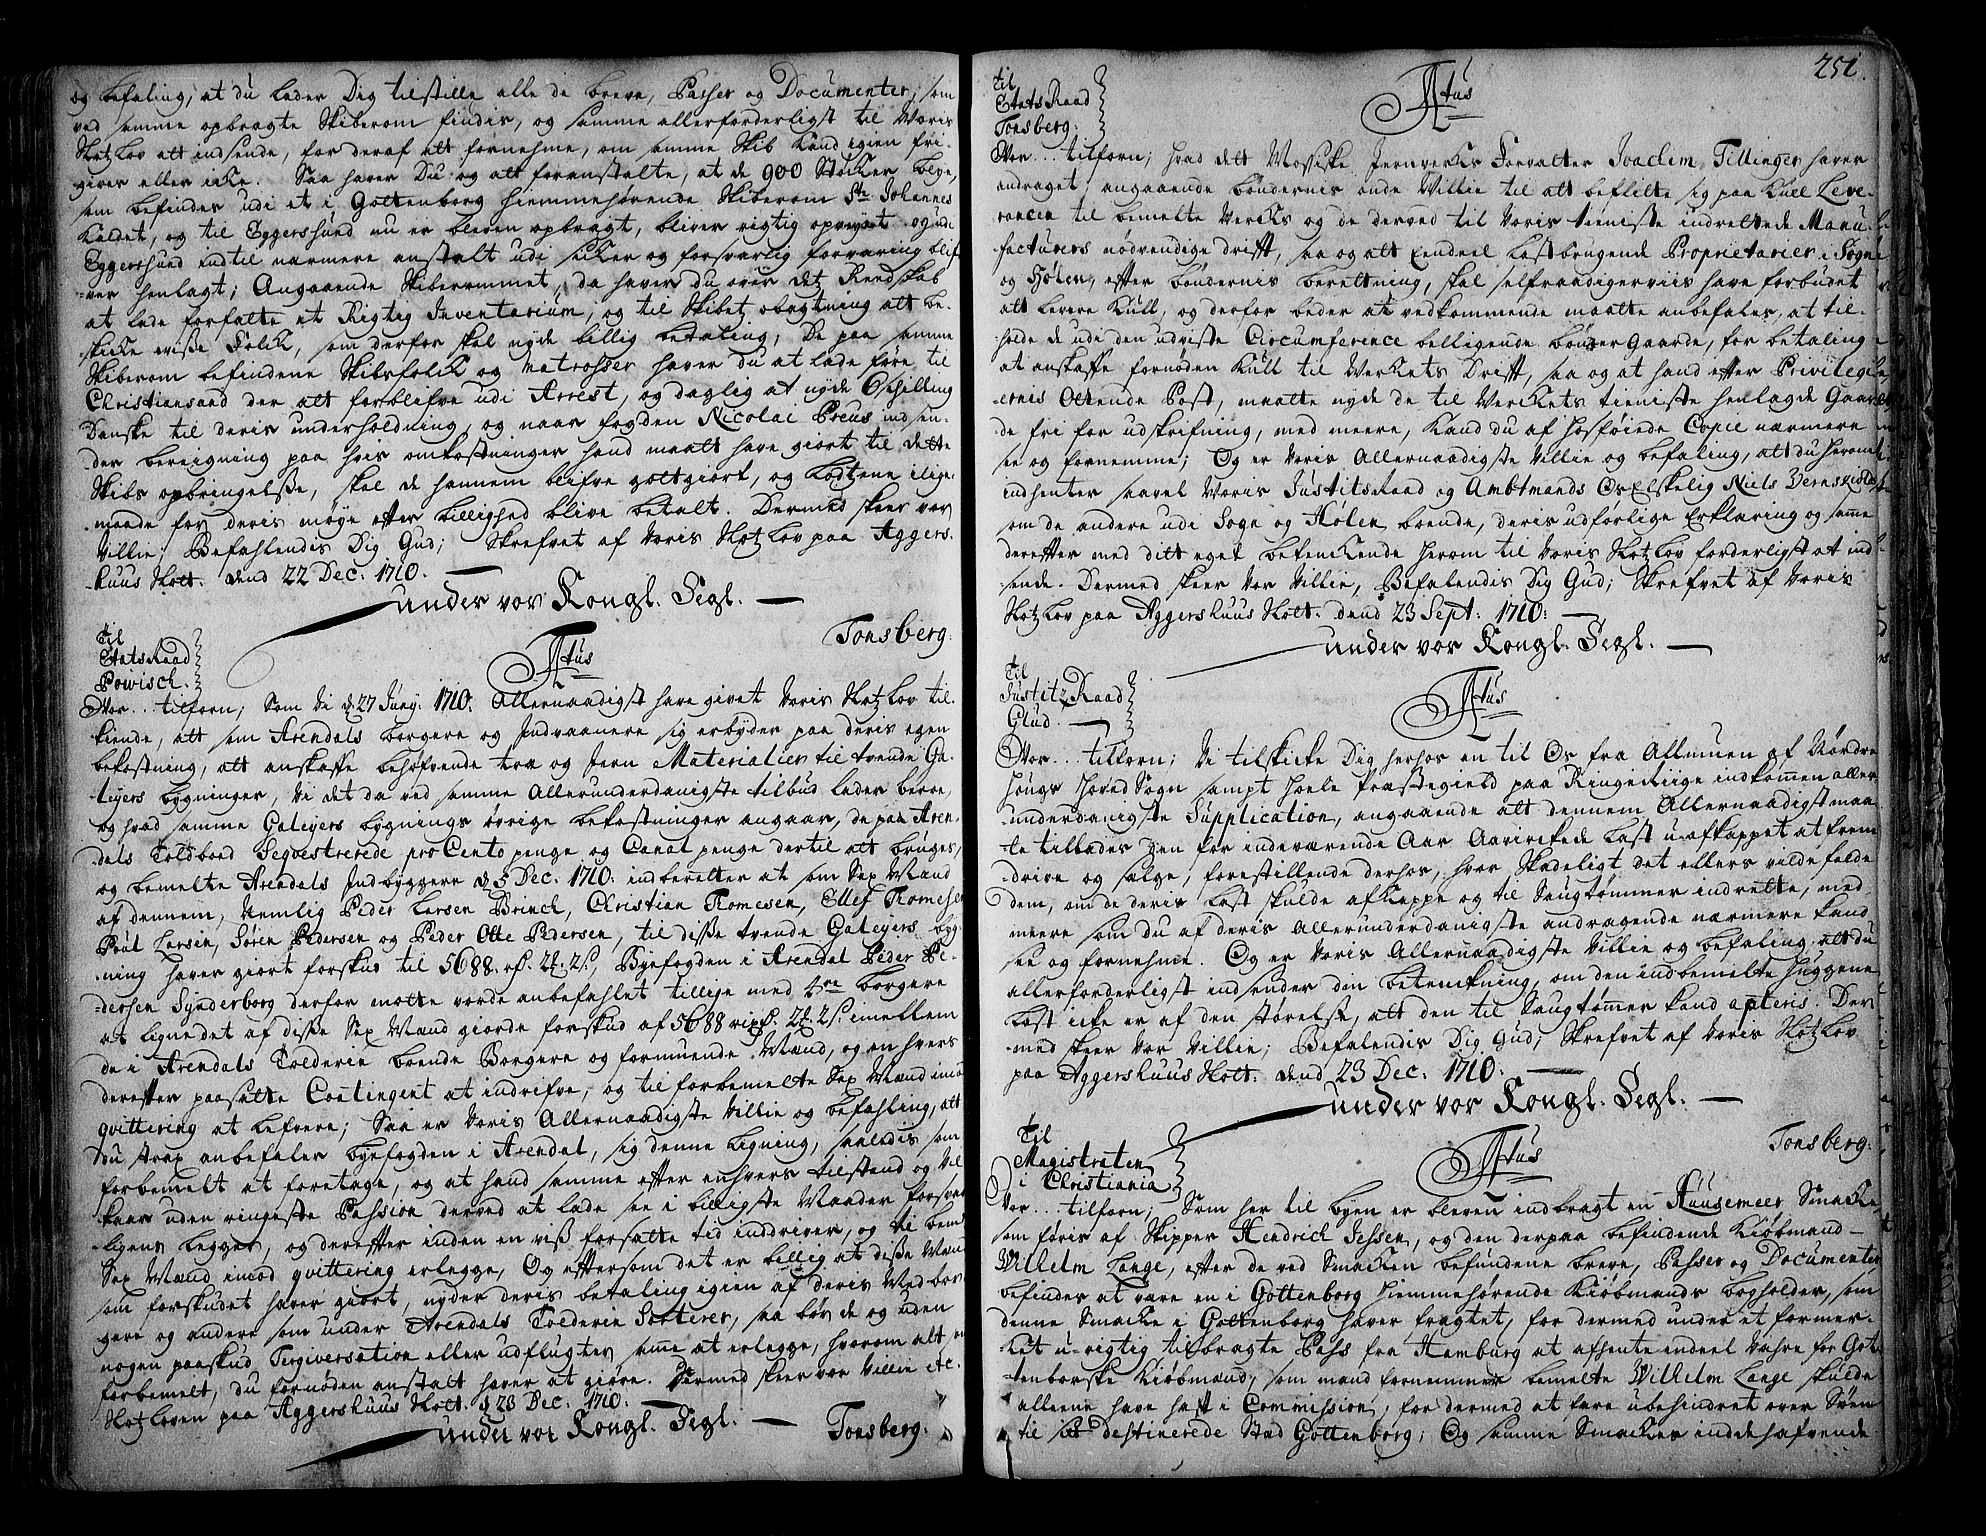 og befaling, at du lader Dig tilstille alle de breve, Passer og Documenter, som
ved samme opbragte Skiberom findis, og samme allerforderligst til Voris
Slotzlov att indsende, for deraf att fornehme, om samme Skib kand igien fri-
gives eller icke. Saa haver Du og att foranstalte, at de 900 Stocker blye,
som befinder udi et i Gottenborg hiemmehørende Skiberom St. Johannes
kaldet, og til Eggersund nu er bleven opbragt, bliver rigtig opveyet og udi
Eggersund indtil nærmere anstalt udi sicker og forsvarlig forvaring blif-
-ver henlagt; Angaaende Skiberommet, da haver du over det Reedskab
at lade forfatte et Rigtig Inventarium, og til Skibet obagtning att be-
skicke visse Folck, som derfor skal nyde billig betaling; De paa samme
Skiberom befindene Skibsfolck og Matrosser haver du at lade føre til
Christiansand der att forblifve udi Arrest, og daglig at nyde 6 schilling
Danske til deris underholdning, og naar fogden Nicolai Preus indsen-
der beregning paa hvis omkostninger hand maatt have giort til dette
Skibs opbringelse, skal de hannem blifve gottgiort, og Lodtzene ilige-
maade for deris møye efter billighed blive betalt. Dermed skeer vor
Villie; Befahlendis Dig Gud; Skrefvet af Voris Slotzlov paa Aggers-
huus Slott. dend 22 Dec. 1710.
under vor Kongl. Segl.
Tonsberg.
Til
EtatsRaad
Powisch.
Vor... tilforn; Som Vi d. 27 Juny. 1710. Allernaadigst have givet Voris Slotzlov til-
kiende, att som Arendals borgere og Indvaanere sig erbyder paa deris egen
bekostning, att anskaffe behøfvende træ og Jern Materialier til tvende Ga-
leyers bygninger, Vi det da ved samme Allerunderdanigste tilbud lader beroe,
og hvad samme Galeyers bygnings øvrige bekostninger angaar, de paa Aren-
dals Toldbod Seqvestrerede pro Cento penge og Canal penge dertil att bruges,
og bemelte Arendals Indbyggere d. 5 Dec. 1710. indberetter at som Sex Mænd
af dennem, Nemlig Peder Larsen Brinch, Christian Tomesen, Ellef Tomesen
Poul Larsen, Søren Pedersen og Peder Otte Pedersen, til disse tvende Galeyers byg-
-ning haver giort forskud til 5688. rd. 2t. 2s., Byefogden i Arendal Peder Pe-
dersen Synderborg derfor motte vorde anbefahlet tillige med 4re borgere
at ligne det af disse Sex Mænd giorde forskud af 5688 rixd. 2t. 2s. imellem
de i Arendals Tolderie boende Borgere og formuende Mænd, og en hvers
derefter paasatte Contingent at indrifve, og til forbemelte Sex Mænd imod
qvittering at lefvere; Saa er Voris Allernaadigste Villie og befahling, att
du strax anbefaler byefogden i Arendal, sig denne ligning, saaledis som
forbemelt at foretage, og at hand samme efter enhvers tilstand og Vil-
kaar uden ringeste Passion derved at lade see i billigste Maader forsvar-
ligens legger, og derefter inden en viss forsatte tid inddriver, og til bem.te
Sex Mænd imod qvittering erlegge, Og eftersom det er billig at disse Mænd
som forskudet haver giort, nyder deris betaling igien af deris Medbor-
gere og andere som under Arendals Tolderie Sorterer, saa bør de og uden
nogen paaskud, Tergiversation eller udflugter samme at erlegge, hvorom att som
forbemelt, du fornøden anstalt haver at giøre. Dermed skeer vor Villie etc.
Slotzloven paa Aggershuus Slott. d. 23 Dec. 1710.
under vor Kongl. Segl.
Tonsberg.
251.
Til
EtatsRaad
Tonsberg.
Vor... tilforn; hvad dett Mossiske Jernverks Forvalter Joachim Tillinger haver
andraget, angaaende bøndernis onde Villie til att beflitte sig paa Kull Leve-
rancen til bemelte Vercks og de derved til Voris tieniste indrettede Manu-
facturers nødvendige drifft, saa og att Eendeel Lastbrugende Proprietarier i Sogne
og Hølen, efter bøndernis beretning, skal selfraadigerviis have forbudet
att levere Kull, og derfor beder at vedkommende maatte anbefales, at til-
holde de udi den udviste Circumference belligende bønder Gaarde, for betaling
at anskaffe fornøden Kull til Verckets Drifft, saa og at hand efter Privilegi-
ernes Ottende Post, maatte nyde de til Verckets tieniste henlagde Gaar-
de fri for udskrifning, med meere, kand du af hosføiede Copie nærmere
see og fornemme; Og er Voris Allernaadigste Villie og befaling, att du herom
indhenter saavel Voris JustitsRaad og Ambtmands Os Elskelig Niels Vernskiolds
som de andere udi Sogn og Hølen boende, deris udførlige Erklaring og samme
derefter med ditt eget betenckende herom til Voris Slotzlov forderligst at ind-
sende. Dermed skeer Vor Villie, Befalendis Dig Gud; Skrefvet af Voris
Slotzlov paa Aggershuus Slott. dend 23 Sept. 1710.
under vor Kongl. Segl.
Til
JustitzRaad
Glud.
Vor... tilforn; Vi tilskicke Dig herhos en til Os fra Allmuen af Nordre
Hougs Hoved Sogn sampt Hoele Præstegield paa Ringeriige indkommen aller-
underdanigste Supplication, angaaende att dennem Allernaadigst maa-
te tillades ... for indeværende Aar Aavirckede Last u-afkappet at frem-
drive og sælge, forestillende derhos, hvor skadeligt det ellers vilde falde
dem, om de deris Last skulde afkappe og til Saugtømmer indrette, med
meere som du af deris Allerunderdanigste andragende nærmere kand
see og fornehme. Og er Voris Allernaadigste Villie og befaling att du
allerforderligst indsender din betenckning, om den indbemelte huggene
Last icke er af den størelse, att den til Saugtømmer kand apteris. Der-
med skeer Vor Villie; Befalendis Dig Gud; Skrefvet af Voris Slotzlov
paa Aggershuus Slott. dend 23 Dec. 1710.
under vor Kongl. Segl.
Tonsberg.
Til
Magistraten
i Christiania
Vor... tilforn; Som her til byen er bleven indbragt en Huusemeer Smacke
som føris af Skipper Hendrich Jessen, og den derpaa befindende Kiøbmand
Wilhelm Lange, efter de ved Smacken befundene breve, Passer og Documenter
befindes at være en i Gottenborg hiemmehørende Kiøbmands bogholder, som
denne Smacke i Gottenborg haver fragtet, for dermed under et formee-
ket u-rigtig tilbragte Pass fra Hamburg at afhente indeel Vahre for Got-
-tenborske Kiøbmænd, som mand fornemmer bemelte Wilhelm Lange skulde
alleene have haft i Commission, for dermed at fare ubehindret over Søen
til ... destinerede Stad Gottenborg; Og samme Smackes inddehafvende